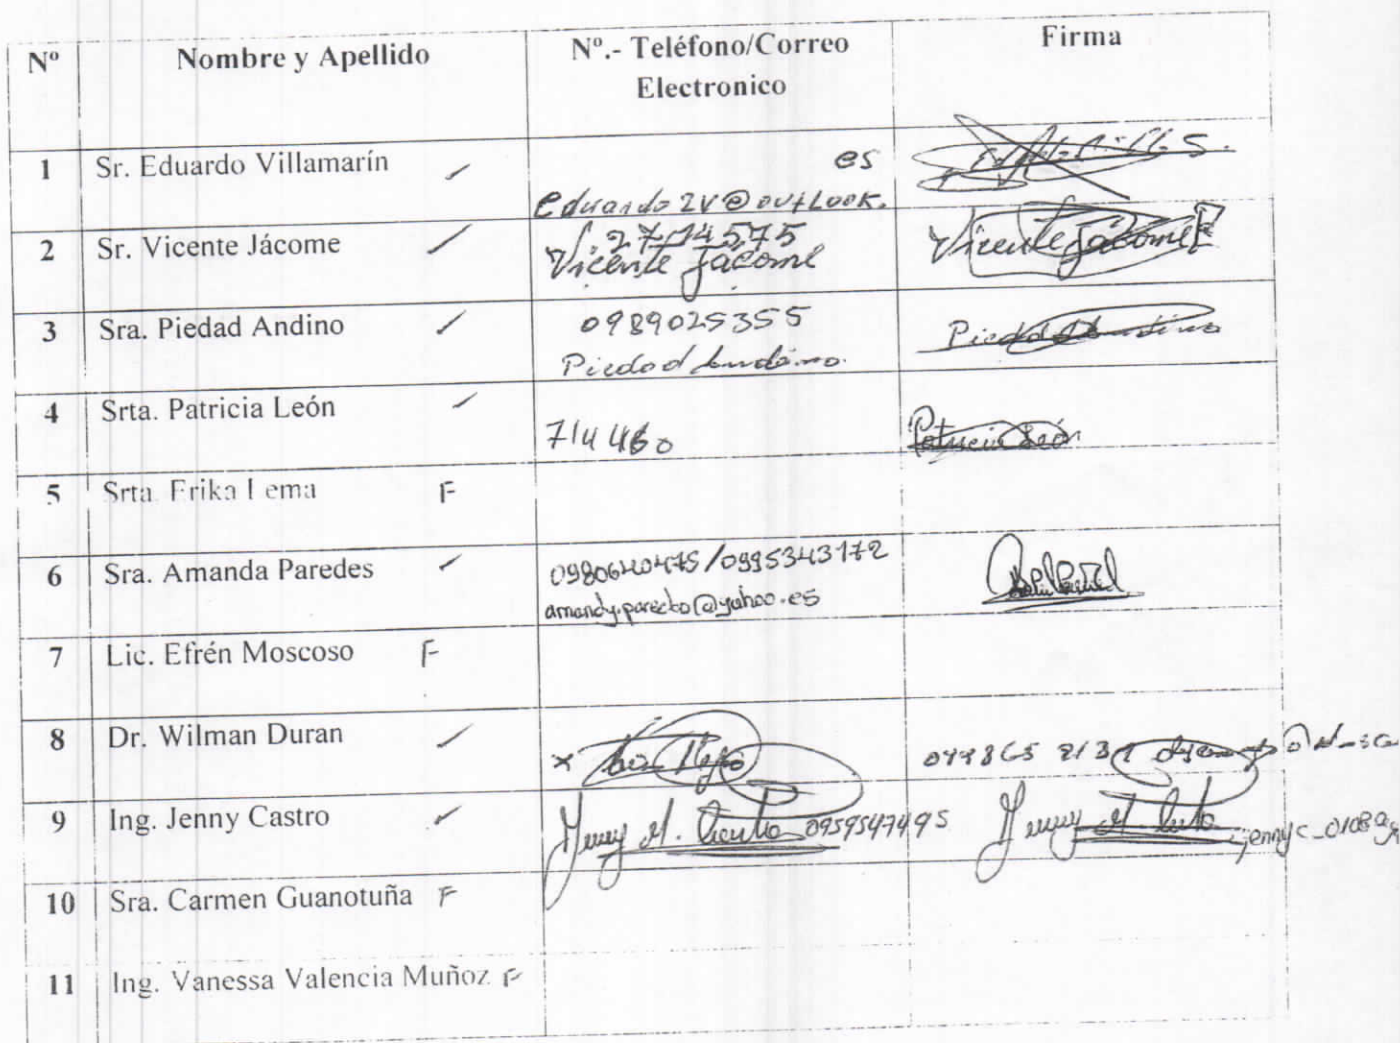 Nº Nombre y Apellido Nº.- Teléfono/Correo Electronico Firma
1 Sr. Eduardo Villamarín es
eduardo2V@outLook.
2 Sr. Vicente Jácome 2714575
Vicente Jácome Vicente Jácome
3 Sra. Piedad Andino 0989025355 Piedad Andino
Piedad Andino.
4 Srta. Patricia León 714480 Patricia León
5 Srta. Erika Lema F
6 Sra. Amanda Paredes 0980640475/0995343172
7 Lic. Efrén Moscoso F
8 Dr. Wilman Duran
9 Ing. Jenny Castro 0959547495
10 Sra. Carmen Guanotuña F
11 Ing. Vanessa Valencia Muñoz F